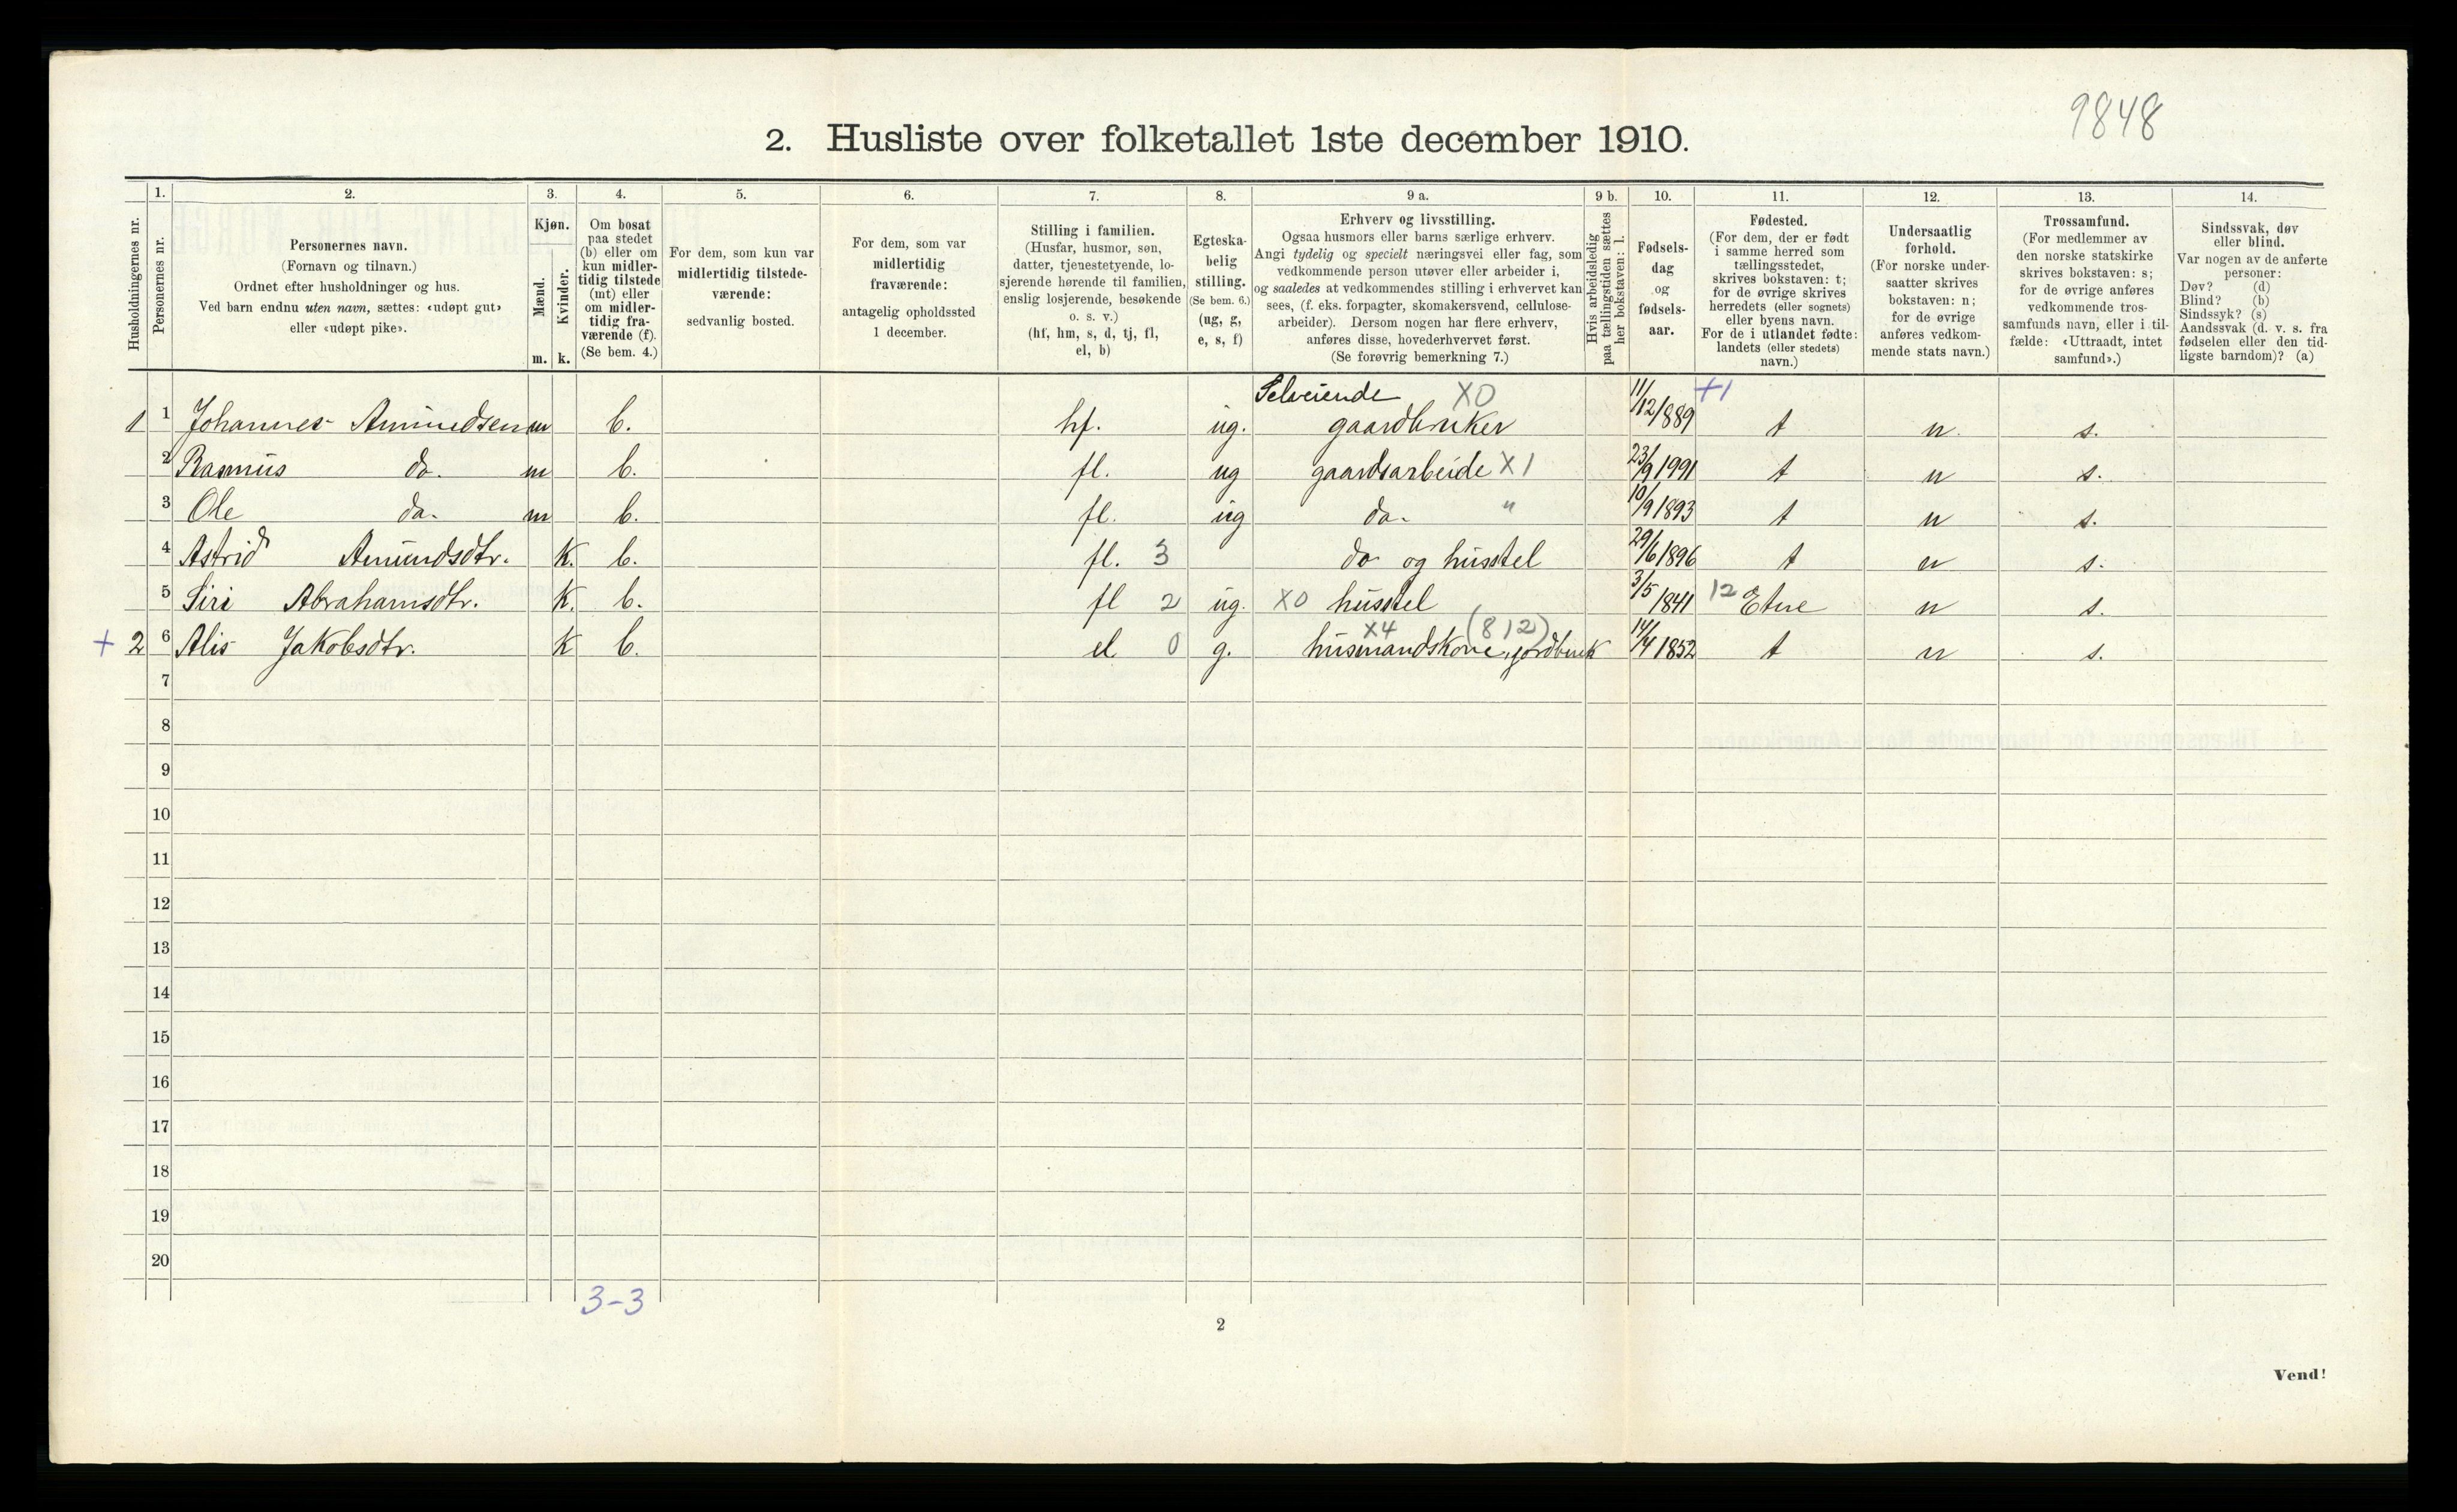 9848
2. Husliste over folketallet 1ste december 1910.
Husholdningernes nr.
1.
Personernes nr.
2.
Personernes navn.
(Fornavn og tilnavn.)
Ordnet efter husholdninger og hus.
Ved barn endnu uten navn, sættes: «udøpt gut»
eller «udøpt pike».
3.
Kjøn.
Mænd.
Kvinder.
m. k.
4.
Om bosat
paa stedet
(b) eller om
kun midler-
tidig tilstede
(mt) eller
om midler-
tidig fra-
værende (f).
(Se bem. 4.)
5.
For dem, som kun var
midlertidig tilstede-
værende:
sedvanlig bosted.
6.
For dem, som var
midlertidig
fraværende:
antagelig opholdssted
1 december.
7.
Stilling i familien.
(Husfar, husmor, søn,
datter, tjenestetyende, lo-
sjerende hørende til familien,
enslig losjerende, besøkende
o. s. v.)
(hf, hm, s, d, tj, fl,
el, b)
8.
Egteska-
belig
stilling.
(Se bem. 6.)
(ug, g,
e, s, f)
9 a.
Erhverv og livsstilling.
Ogsaa husmors eller barns særlige erhverv.
Angi tydelig og specielt næringsvei eller fag, som
vedkommende person utøver eller arbeider i,
og saaledes at vedkommendes stilling i erhvervet kan
sees, (f. eks. forpagter, skomakersvend, cellulose-
arbeider). Dersom nogen har flere erhverv,
anføres disse, hovederhvervet først.
(Se forøvrig bemerkning 7.)
9 b.
Hvis arbeidsledig
paa tællingstiden sættes
her bokstaven: l.
10.
Fødsels-
dag
og
fødsels-
aar.
11.
Fødested.
(For dem, der er født
i samme herred som
tællingsstedet,
skrives bokstaven: t;
for de øvrige skrives
herredets (eller sognets)
eller byens navn.
For de i utlandet fødte:
landets (eller stedets)
navn.)
12.
Undersaatlig
forhold.
(For norske under-
saatter skrives
bokstaven: n;
for de øvrige
anføres vedkom-
mende stats navn.)
13.
Trossamfund.
(For medlemmer av
den norske statskirke
skrives bokstaven: s;
for de øvrige anføres
vedkommende tros-
samfunds navn, eller i til-
fælde: «Uttraadt, intet
samfund».)
14.
Sindssvak, døv
eller blind.
Var nogen av de anførte
personer:
Døv? (d)
Blind? (b)
Sindssyk? (s)
Aandssvak (d. v. s. fra
fødselen eller den tid-
ligste barndom)? (a)
Selveiende X0 +1
1 1 Johannes Amundsen m b. hf. ug. gaardbruker 11/12 1889 t n s.
2 Rasmus do. m b. fl. ug gaardsarbeide X1 23/9 1991 t n s.
3 Ole do. m b. fl. ug do. " 10/9 1893 t n s.
4 Astrid Amundsdtr. K. b. fl. 3 do og husstel 29/6 1896 t n s.
5 Siri Abrahamsdtr. K. b. fl 2 ug. X0 husstel 3/5 1841 12 Etne n s.
X4 (812)
+ 2 6 Alis Jakobsdtr. K b. el 0 g. husmandskone, jordbruk 14/4 1852 t n s.
7
8
9
10
11
12
13
14
15
16
17
18
19
20
3-3
2
Vend!